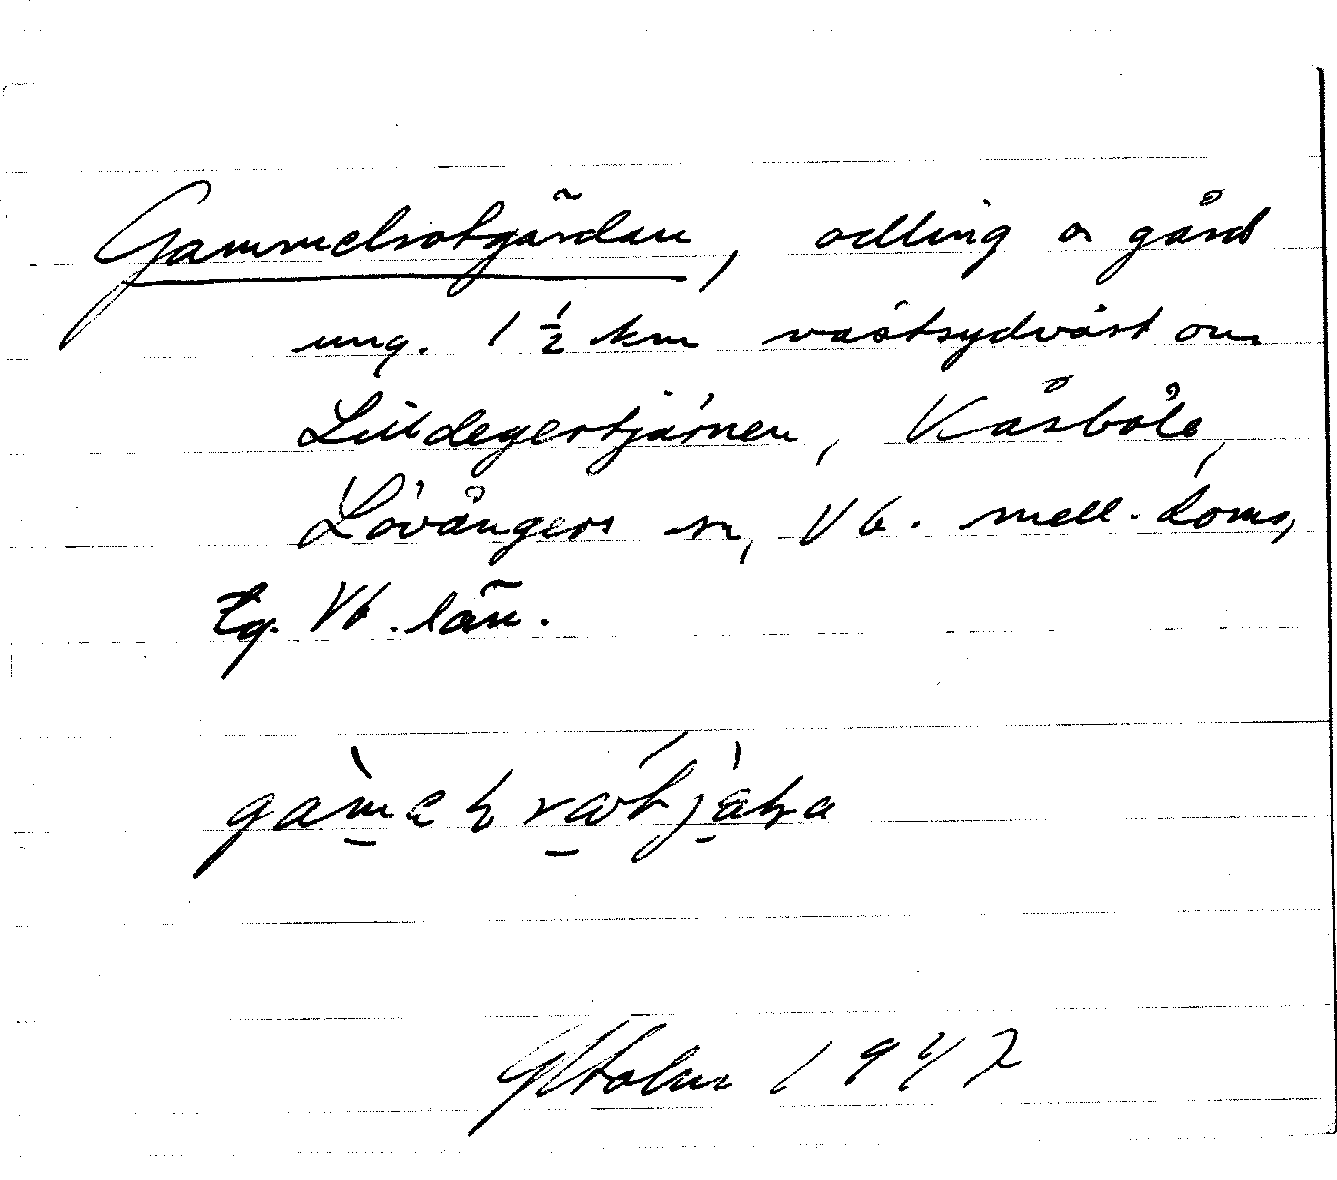 Gammelrotgärdan, odling o gård
ung. 1 ½ km västsydväst om
Lilldegertjärnen, Kåsböle,
Lövångers sn, Vb. mell. doms,
tg. Vb. län.
Holm 1947